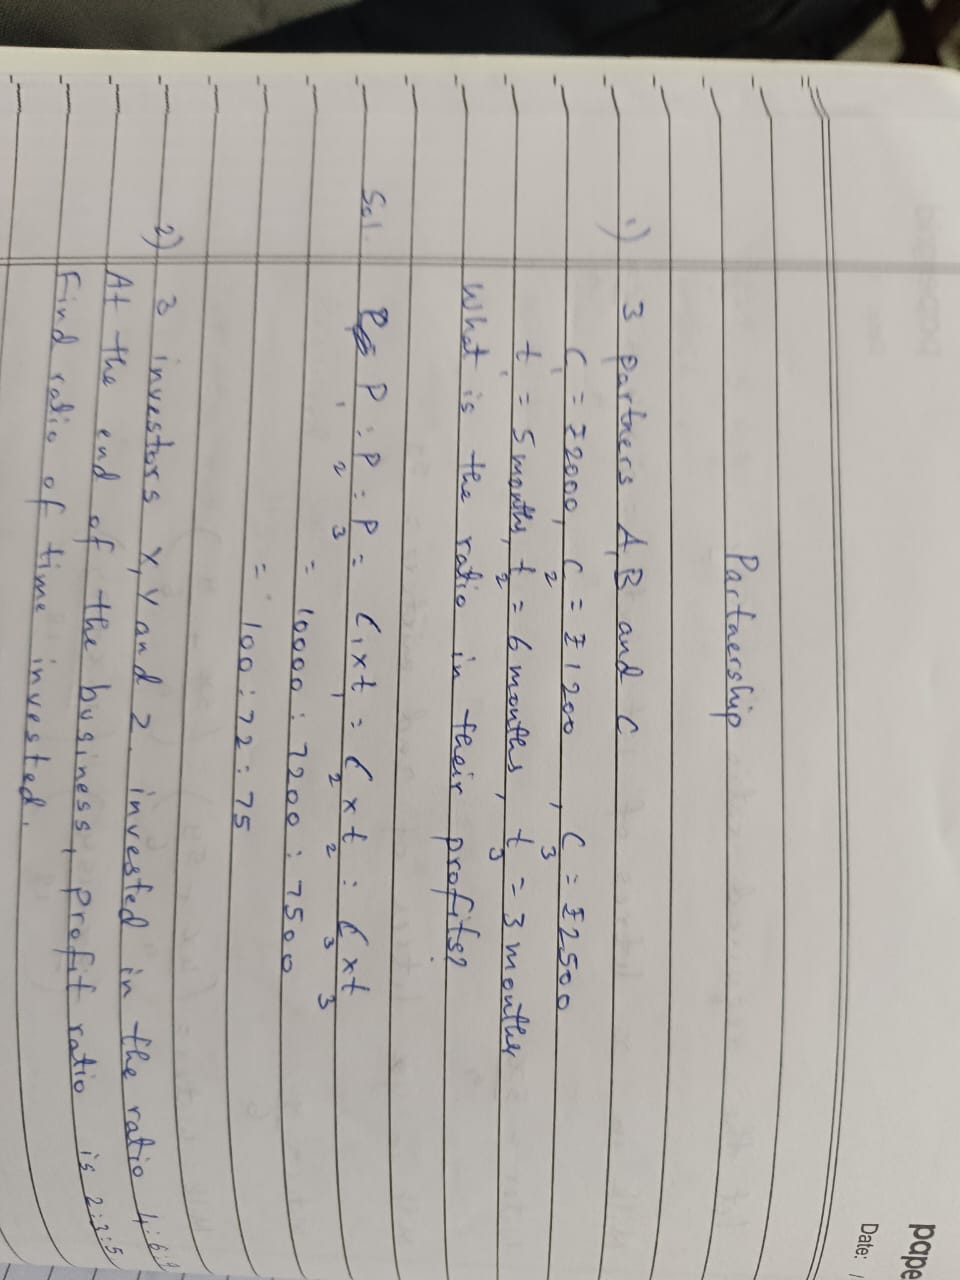 pape
Date: /
Partnership
1) 3 partners A, B and C
C₁ = ₹2000, C₂ = ₹1200, C₃ = ₹2500
t₁ = 5 months, t₂ = 6 months, t₃ = 3 months
What is the ratio in their profits?
Sol. P₁ : P₂ : P₃ = C₁×t₁ : C₂×t₂ : C₃×t₃
= 10000 : 7200 : 7500
= 100 : 72 : 75
2) 3 investors X, Y and Z invested in the ratio 4:6:9
At the end of the business, profit ratio is 2:3:5
Find ratio of time invested.